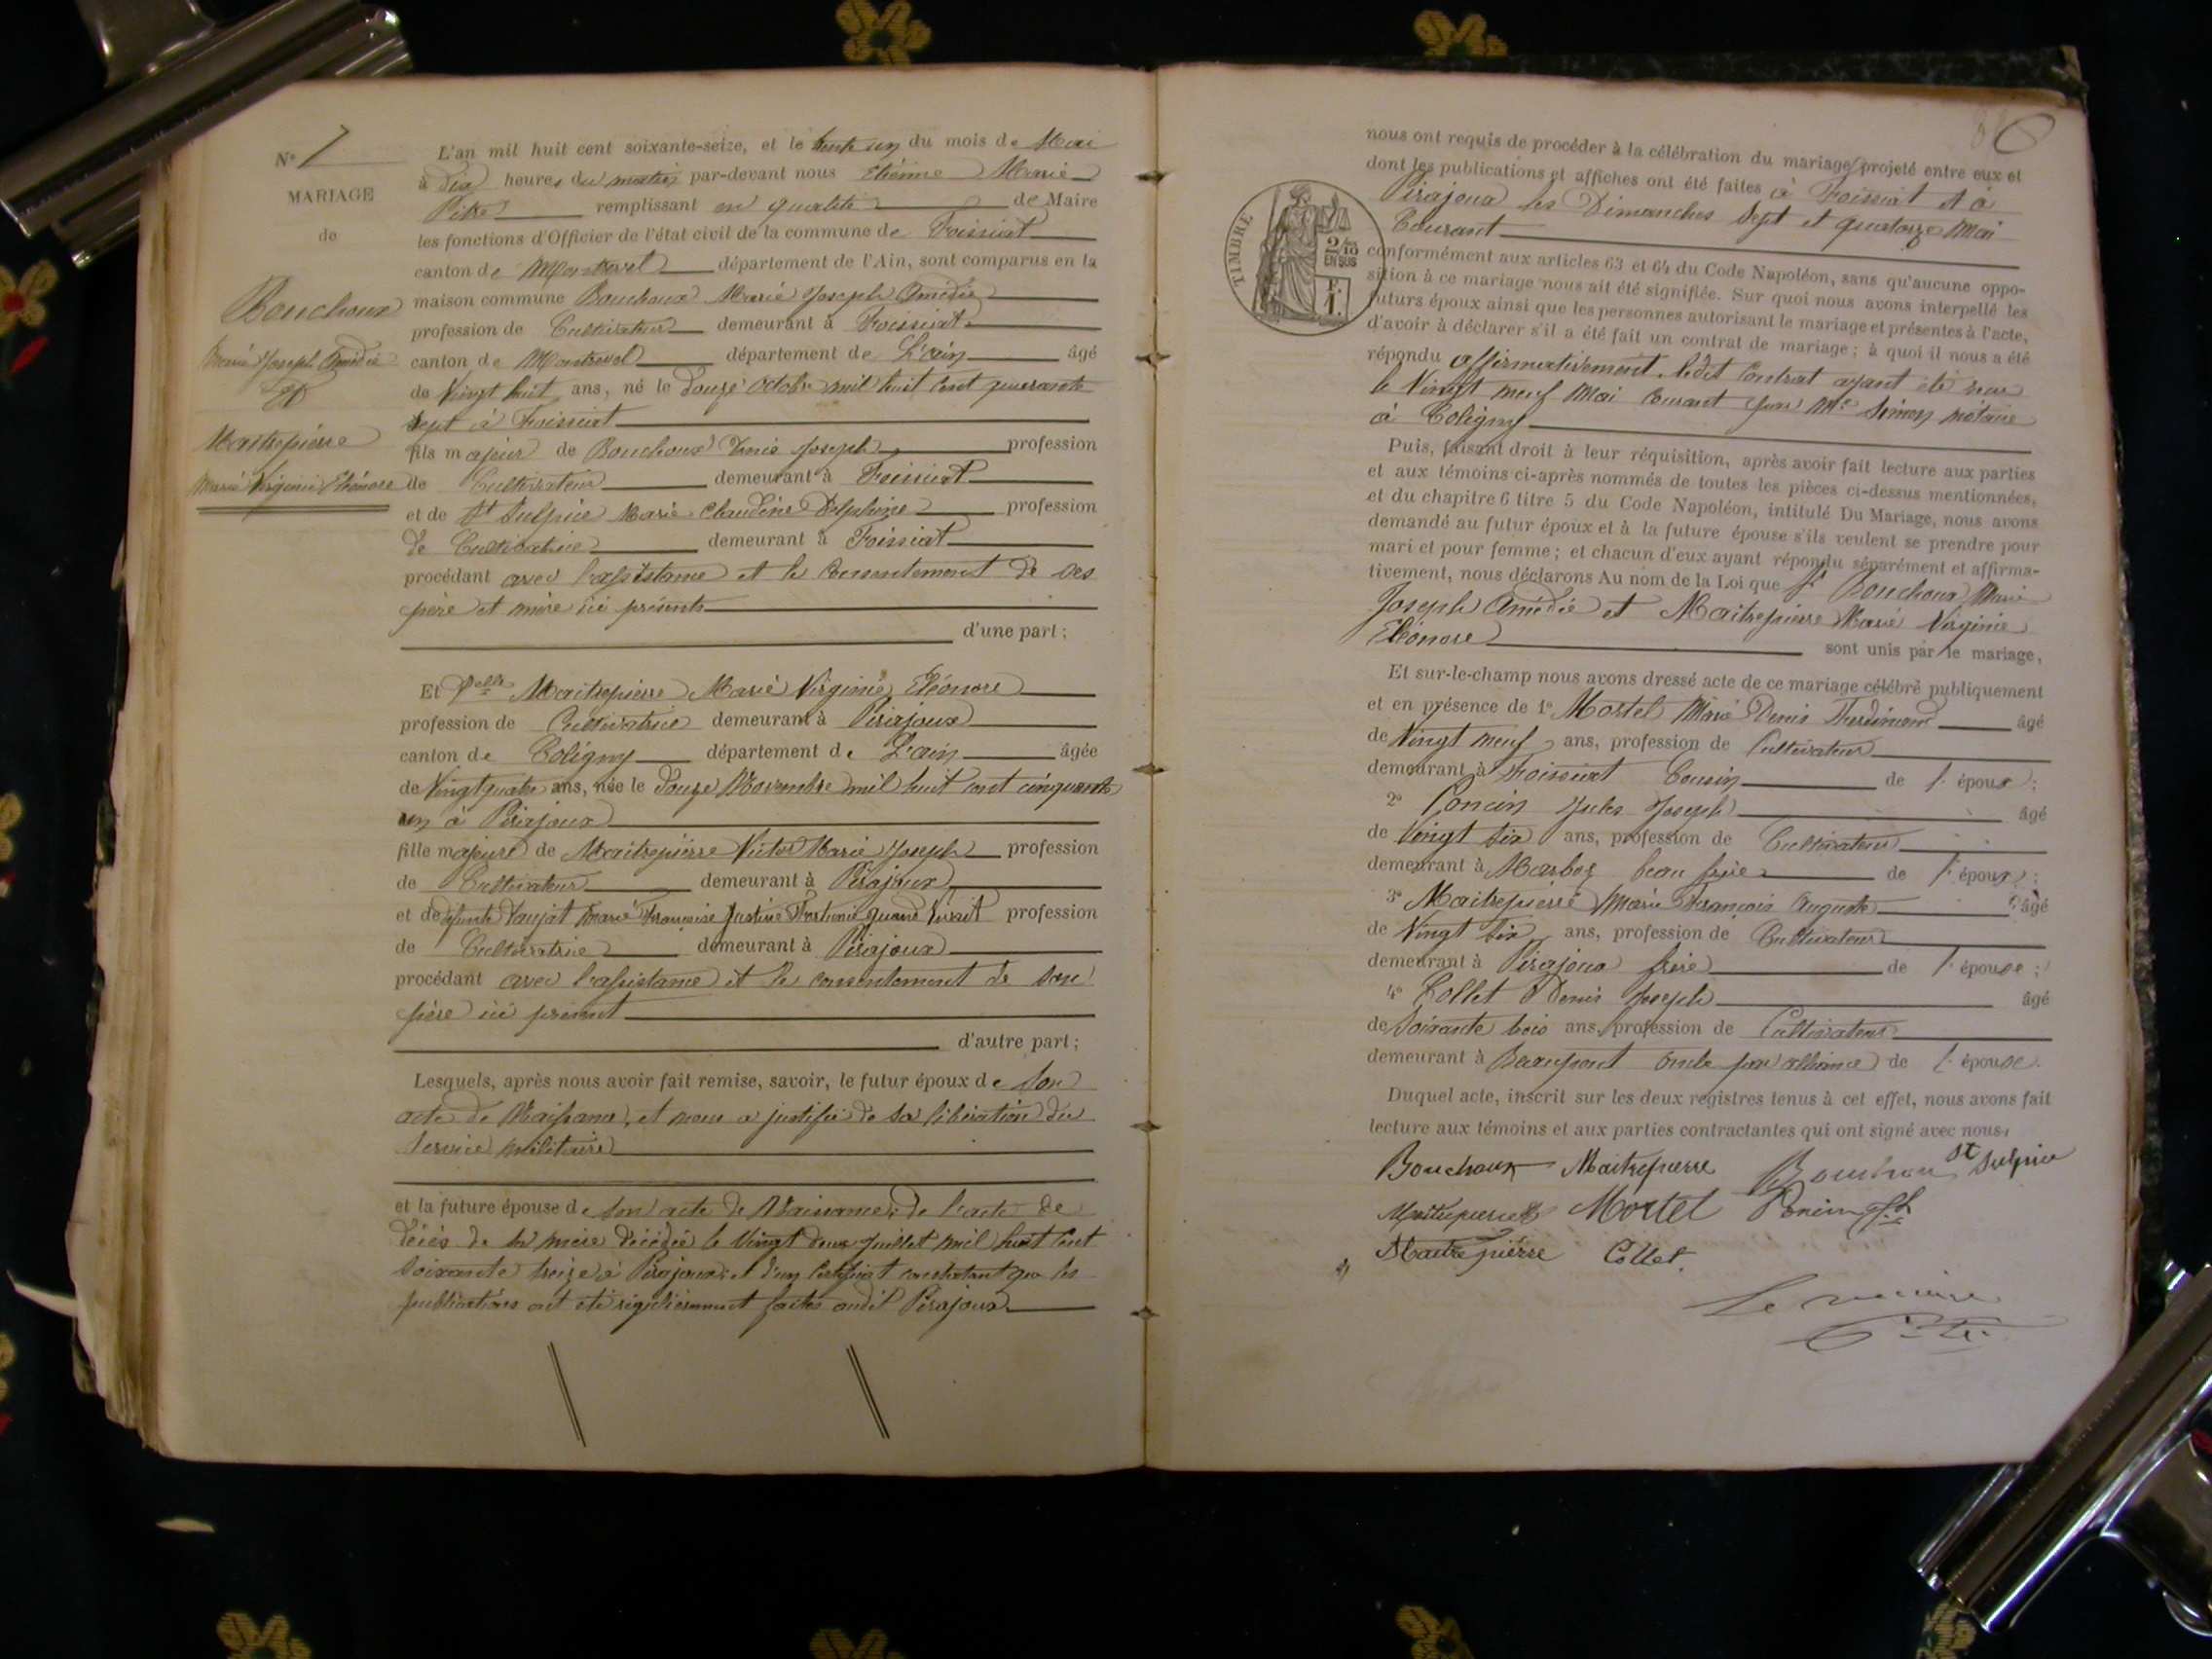 N° 7
MARIAGE
de
Bouchoux
Marie Joseph Amédée
Et
Maitrepierre
Marie Virginie Eléonore
L'an mil huit cent soixante-seize, et le trente un du mois de Mai
à Dix heures du matin par-devant nous Etienne Marie
Pitre remplissant en qualité de Maire
les fonctions d'Officier de l'état civil de la commune de Foissiat
canton de Montrevel département de l'Ain, sont comparus en la
maison commune Bouchoux Marie Joseph Amédée
profession de Cultivateur demeurant à Foissiat
canton de Montrevel département de L'ain âgé
de Vingt huit ans, né le Douze Octobre mil huit cent quarante
sept à Foissiat
fils majeur de Bouchoux Denis Joseph profession
de Cultivateur demeurant à Foissiat
et de St Sulpice Marie Claudine Delphine profession
de Cultivatrice demeurant à Foissiat
procédant avec l'assistance et le consentement de ses
père et mère ici présents
d'une part ;
Et Delle Maitrepierre Marie Virginie Eléonore
profession de Cultivatrice demeurant à Pirajoux
canton de Coligny département de L'ain âgée
de Vingt quatre ans, née le Douze Novembre mil huit cent cinquante
un à Pirajoux
fille majeure de Maitrepierre Victor Marie Joseph profession
de Cultivateur demeurant à Pirajoux
et de défunte Vaujat Marie Françoise Justine quand vivait profession
de Cultivatrice demeurant à Pirajoux
procédant avec l'assistance et le consentement de son
père ici présent
d'autre part ;
Lesquels, après nous avoir fait remise, savoir, le futur époux de Son
acte de Naissance, et nous a justifié de sa libération du
Service militaire
et la future épouse de son acte de Naissance, de l'acte de
décès de sa mère décédée le Vingt deux Juillet mil huit cent
soixante treize à Pirajoux, et d'un Certificat constatant que les
publications ont été régulièrement faites audit Pirajoux
nous ont requis de procéder à la célébration du mariage projeté entre eux et
dont les publications et affiches ont été faites à Foissiat et à
Pirajoux les Dimanches Sept et quatorze Mai
Courant
TIMBRE
2/10
EN SUS
F.
1.
conformément aux articles 63 et 64 du Code Napoléon, sans qu'aucune oppo-
sition à ce mariage nous ait été signifiée. Sur quoi nous avons interpellé les
futurs époux ainsi que les personnes autorisant le mariage et présentes à l'acte,
d'avoir à déclarer s'il a été fait un contrat de mariage ; à quoi il nous a été
répondu affirmativement. ledit Contrat ayant été reçu
le Vingt neuf Mai Courant par Me Simon notaire
à Coligny
Puis, faisant droit à leur réquisition, après avoir fait lecture aux parties
et aux témoins ci-après nommés de toutes les pièces ci-dessus mentionnées,
et du chapitre 6 titre 5 du Code Napoléon, intitulé Du Mariage, nous avons
demandé au futur époux et à la future épouse s'ils veulent se prendre pour
mari et pour femme ; et chacun d'eux ayant répondu séparément et affirma-
tivement, nous déclarons Au nom de la Loi que Bouchoux Marie
Joseph Amédée et Maitrepierre Marie Virginie
Eléonore sont unis par le mariage,
Et sur-le-champ nous avons dressé acte de ce mariage célébré publiquement
et en présence de 1° Mortel Marie Denis Ferdinand âgé
de Vingt neuf ans, profession de Cultivateur
demeurant à Foissiat Cousin de l'époux ;
2° Poncin Jules Joseph âgé
de Vingt six ans, profession de Cultivateur
demeurant à Marboz beau frère de l'époux ;
3° Maitrepierre Marie François Auguste âgé
de Vingt six ans, profession de Cultivateur
demeurant à Pirajoux frère de l'épouse ;
4° Collet Denis Joseph âgé
de Soixante trois ans, profession de Cultivateur
demeurant à Beaupont oncle par alliance de l'épouse.
Duquel acte, inscrit sur les deux registres tenus à cet effet, nous avons fait
lecture aux témoins et aux parties contractantes qui ont signé avec nous.
Bouchoux Maitrepierre Bouchoux St Sulpice
Maitrepierre Mortel Poncin
Maitrepierre Collet
Le maire
Pitre